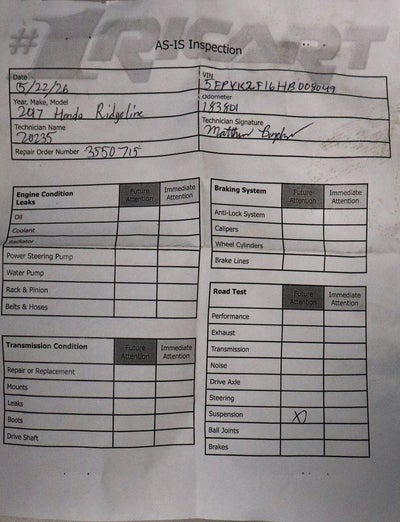 #1 RICART
AS-IS Inspection
Date
5/22/26
VIN
5FPYK2F16HB008049
Year, Make, Model
2017 Honda Ridgeline
Odometer
183801
Technician Name
20235
Technician Signature
Matthew
Repair Order Number 3550715
Engine Condition Future Attention Immediate Attention
Leaks
Oil
Coolant
Radiator
Power Steering Pump
Water Pump
Rack & Pinion
Belts & Hoses
Transmission Condition Future Attention Immediate Attention
Repair or Replacement
Mounts
Leaks
Boots
Drive Shaft
Braking System Future Attention Immediate Attention
Anti-Lock System
Calipers
Wheel Cylinders
Brake Lines
Road Test Future Attention Immediate Attention
Performance
Exhaust
Transmission
Noise
Drive Axle
Steering
Suspension X
Ball Joints
Brakes